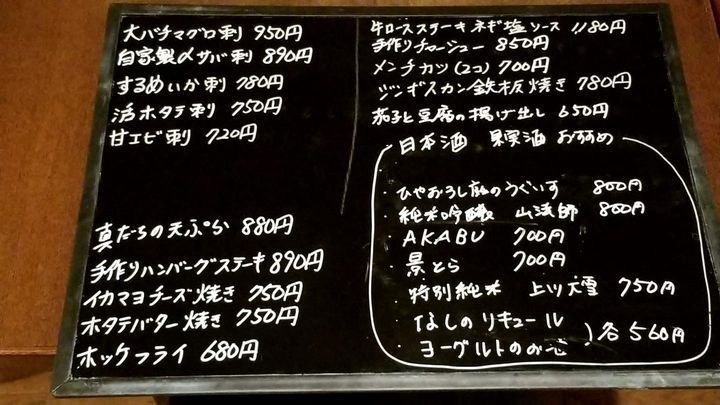 大バチマグロ刺 950円
自家製〆サバ刺 890円
するめいか刺 780円
活ホタテ刺 750円
甘エビ刺 720円
真だちの天ぷら 880円
手作りハンバーグステーキ 890円
イカマヨチーズ焼き 750円
ホタテバター焼き 750円
ホッケフライ 680円
牛ロースステーキ ネギ塩ソース 1180円
手作りチャーシュー 850円
メンチカツ(2コ) 700円
ジンギスカン鉄板焼き 780円
茄子と豆腐の揚げ出し 650円
日本酒 果実酒 おすすめ
・ひやおろし 庭のうぐいす 800円
・純米吟醸 山法師 800円
・AKABU 700円
・景とら 700円
・特別純米 上川大雪 750円
・なしのリキュール
・ヨーグルトのお酒 )各560円